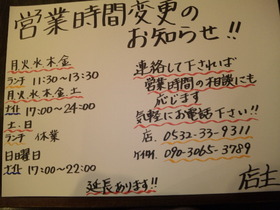 営業時間変更の
お知らせ!!
月火水木金
ランチ 11:30~13:30
月火水木金土
17:00~24:00
土、日
ランチ 休業
日曜日
17:00~22:00
連絡して下されば
営業時間の相談にも
応じます
気軽にお電話下さい!!
店. 0532-33-9311
ケイタイ. 090-3065-3789
延長あります!!
店主